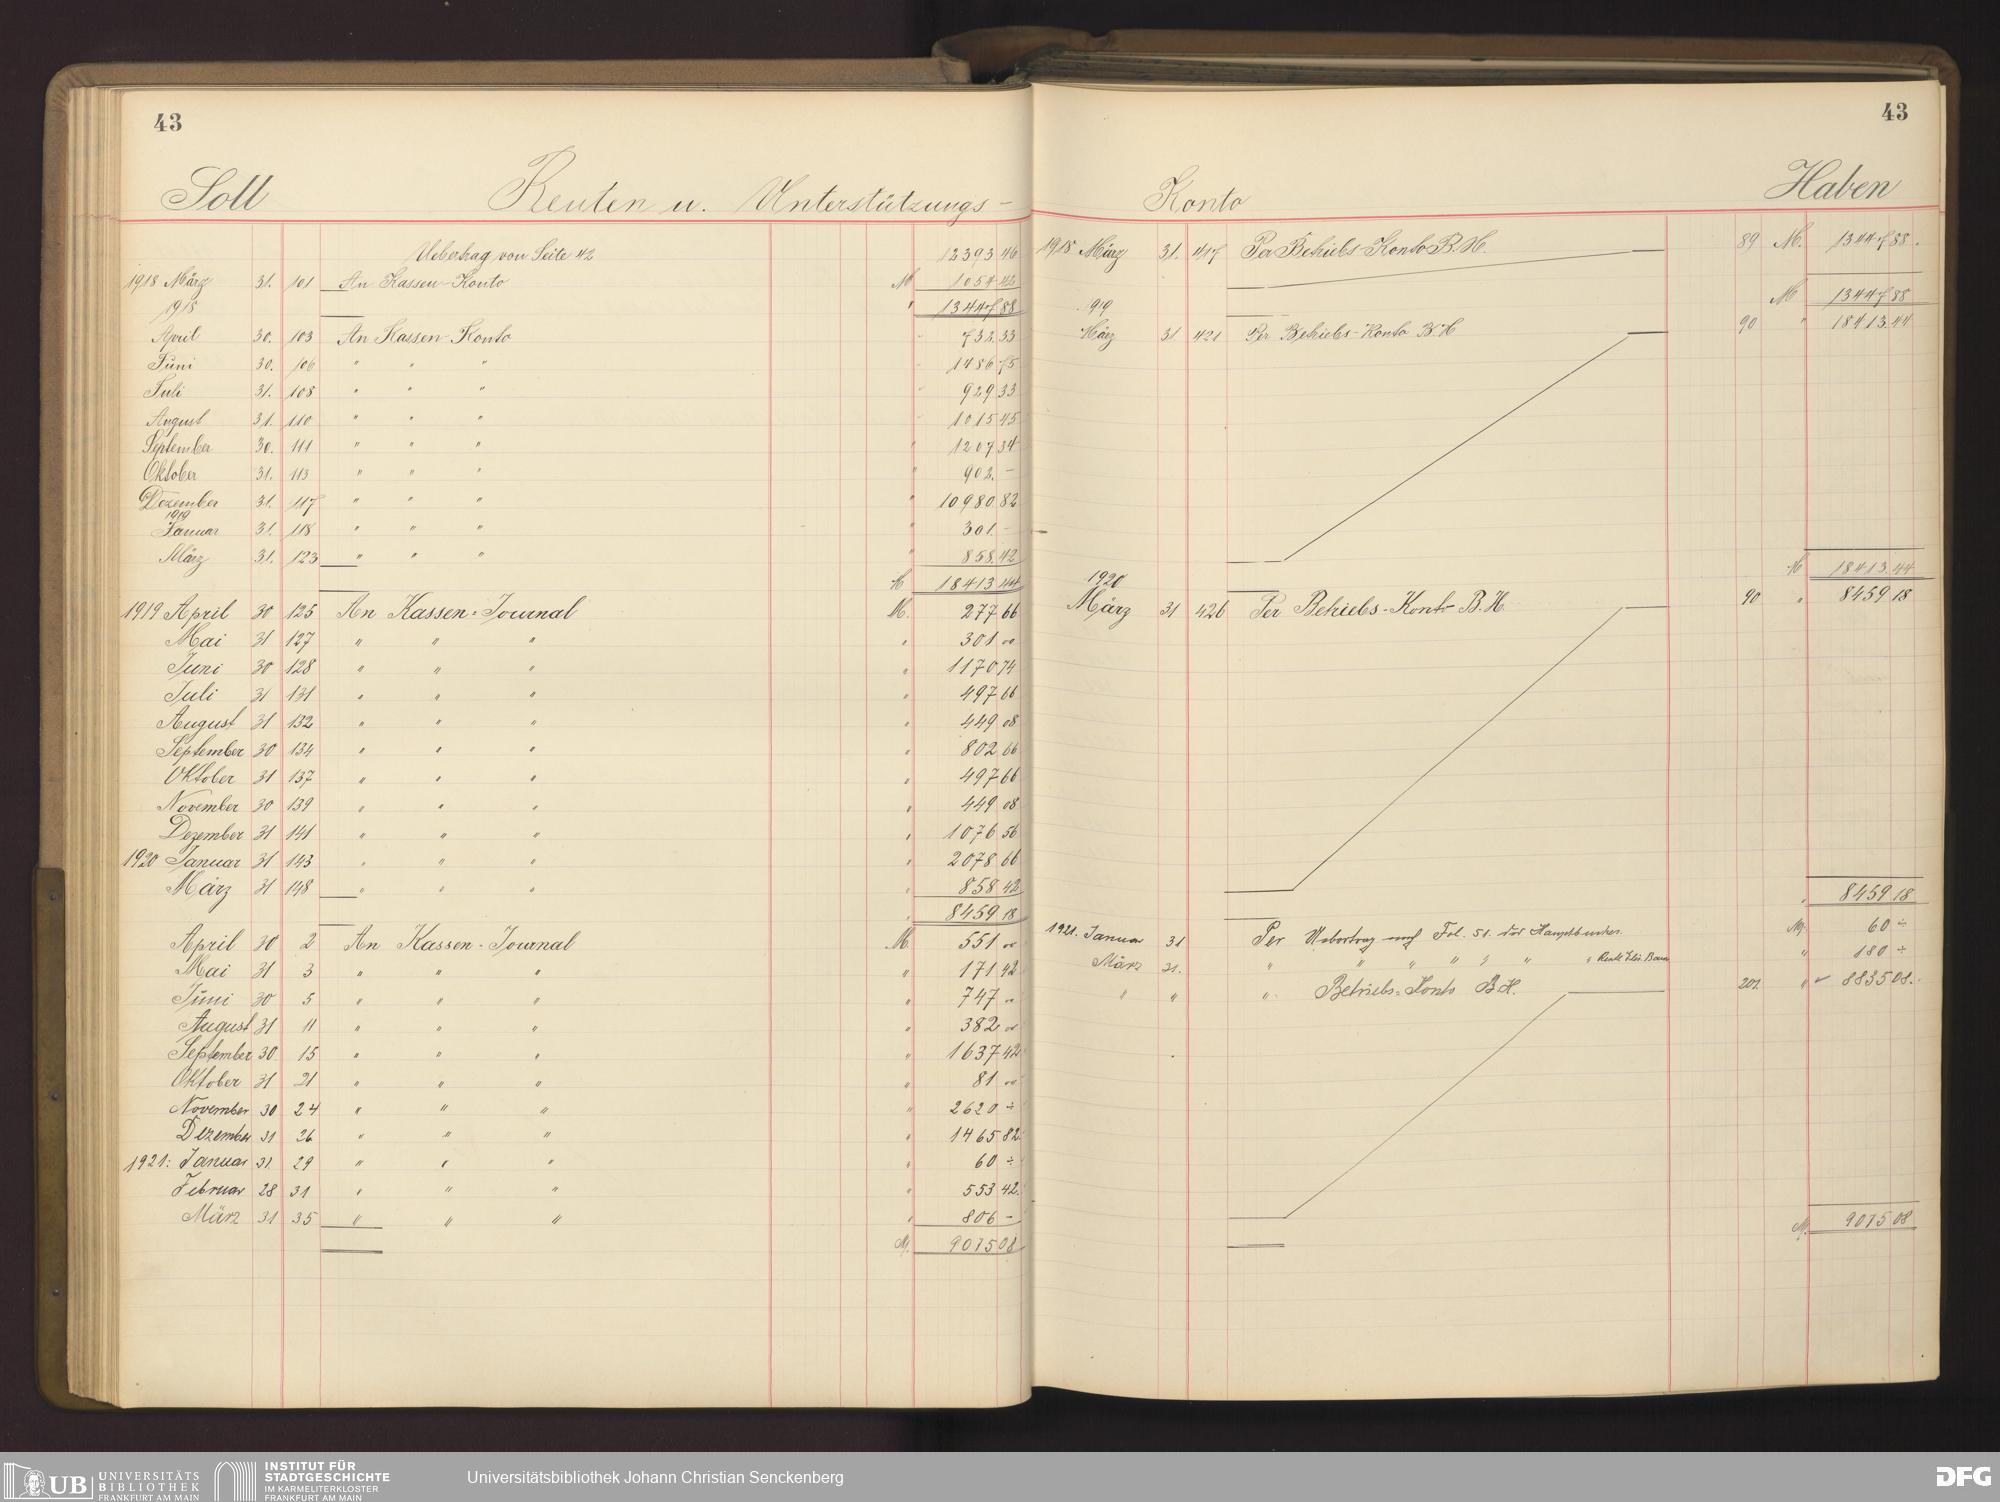 43
Soll Renten u. Unterstützungs-
Uebertrag von Seite 42 12393 46
1918 März 31. 101 An Kassen-Konto M 1054 42
1918 " 13447 88
April 30. 103 An Kassen-Konto 732.33
Juni 30. 106 " " " 1486 75
Juli 31. 108 " " " 929 33
August 31. 110 " " " 1015 45
September 30. 111 " " " " 1207 34
Oktober 31. 113 " " " " 902.–
Dezember 31. 117 " " " " 10980.82
1919
Januar 31. 118 " " " " 301.–
März 31. 123 " " " " 858.42
M 18413 44
1919 April 30 125 An Kassen-Journal M. 277 66
Mai 31 127 " " " " 301 00
Juni 30 128 " " " " 1170 74
Juli 31 131 " " " " 497 66
August 31 132 " " " " 449 08
September 30 134 " " " " 802 66
Oktober 31 137 " " " " 497 66
November 30 139 " " " " 449 08
Dezember 31 141 " " " " 1076 56
1920 Januar 31 143 " " " " 2078 66
März 31 148 " " " " 858 42
" 8459 18
April 30 2 An Kassen-Journal M. 551 00
Mai 31 3 " " " " 171 42
Juni 30 5 " " " " 747 00
August 31 11 " " " " 382 00
September 30 15 " " " " 1637 42
Oktober 31 21 " " " " 81 00
November 30 24 " " " " 2620 ÷
Dezember 31 26 " " " " 1465 82
1921: Januar 31. 29 " " " " 60 ÷
Februar 28 31 " " " " 553 42.
März 31 35 " " " " 806 –
M. 9075 08
43
Konto Haben
1918 März 31. 417 Per Betriebs-Konto B.H. 89 M. 13447 88.
M 13447 88
1919
März 31. 421 Per Betriebs-Konto B.H 90 " 18413.44
M 18413.44
1920
März 31 426 Per Betriebs-Konto B.H. 90 " 8459 18
" 8459 18
1921. Januar 31 Per Uebertrag auf Fol. 51. des Hauptbuches. M. 60 ÷
März 31. " " " " " " " 180 ÷
" " " Betriebs-Konto B.H. 201. " 8835 08.
M. 9075 08
UB UNIVERSITÄTS
BIBLIOTHEK
FRANKFURT AM MAIN
INSTITUT FÜR
STADTGESCHICHTE
IM KARMELITERKLOSTER
FRANKFURT AM MAIN
Universitätsbibliothek Johann Christian Senckenberg
DFG